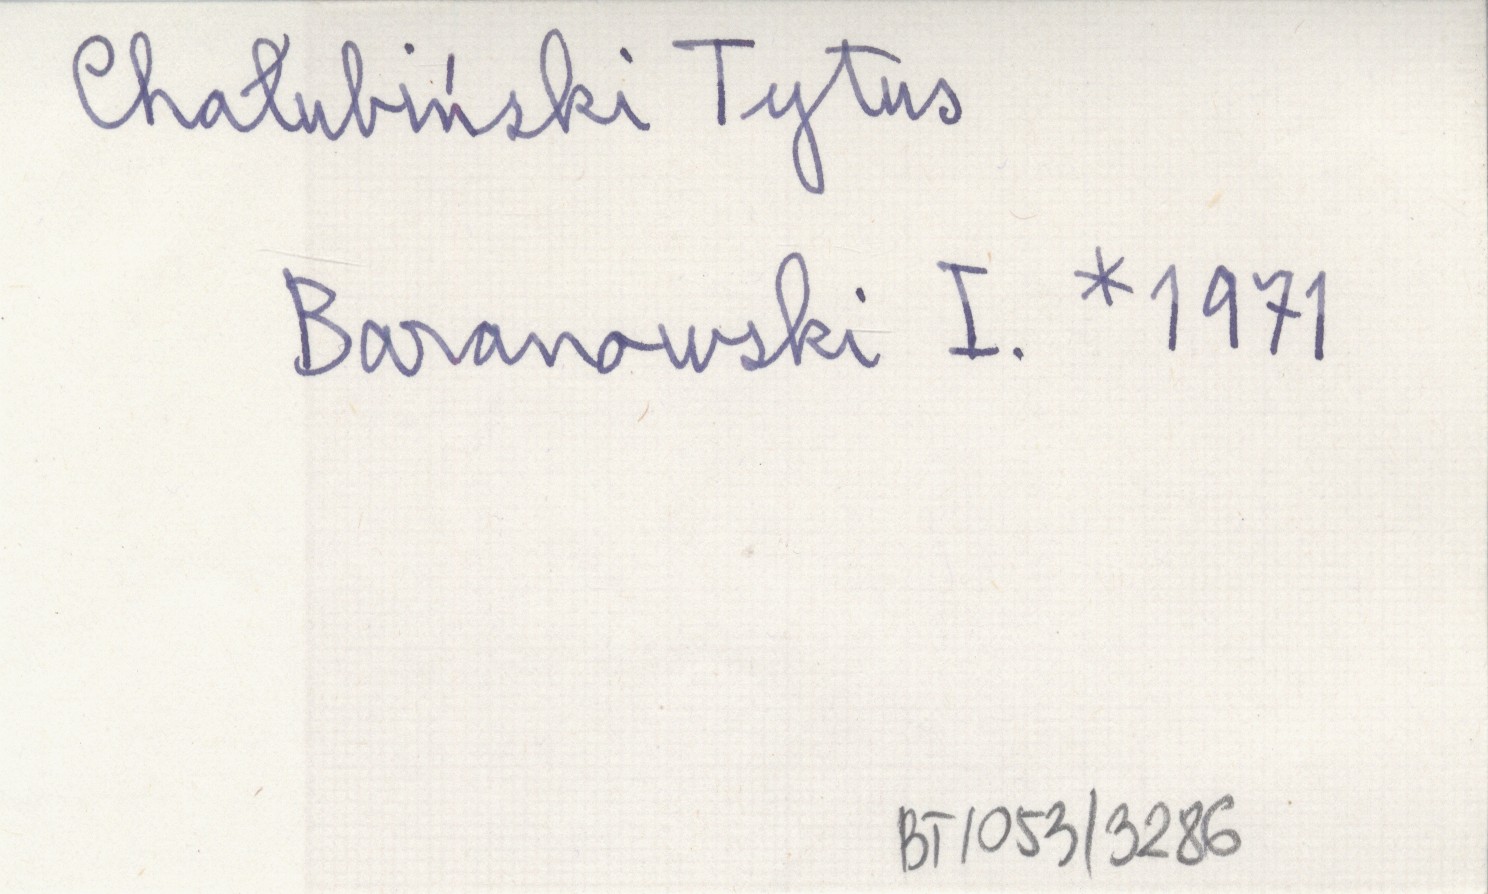 Chałubiński Tytus
Baranowski I. *1971
BT/053/3286